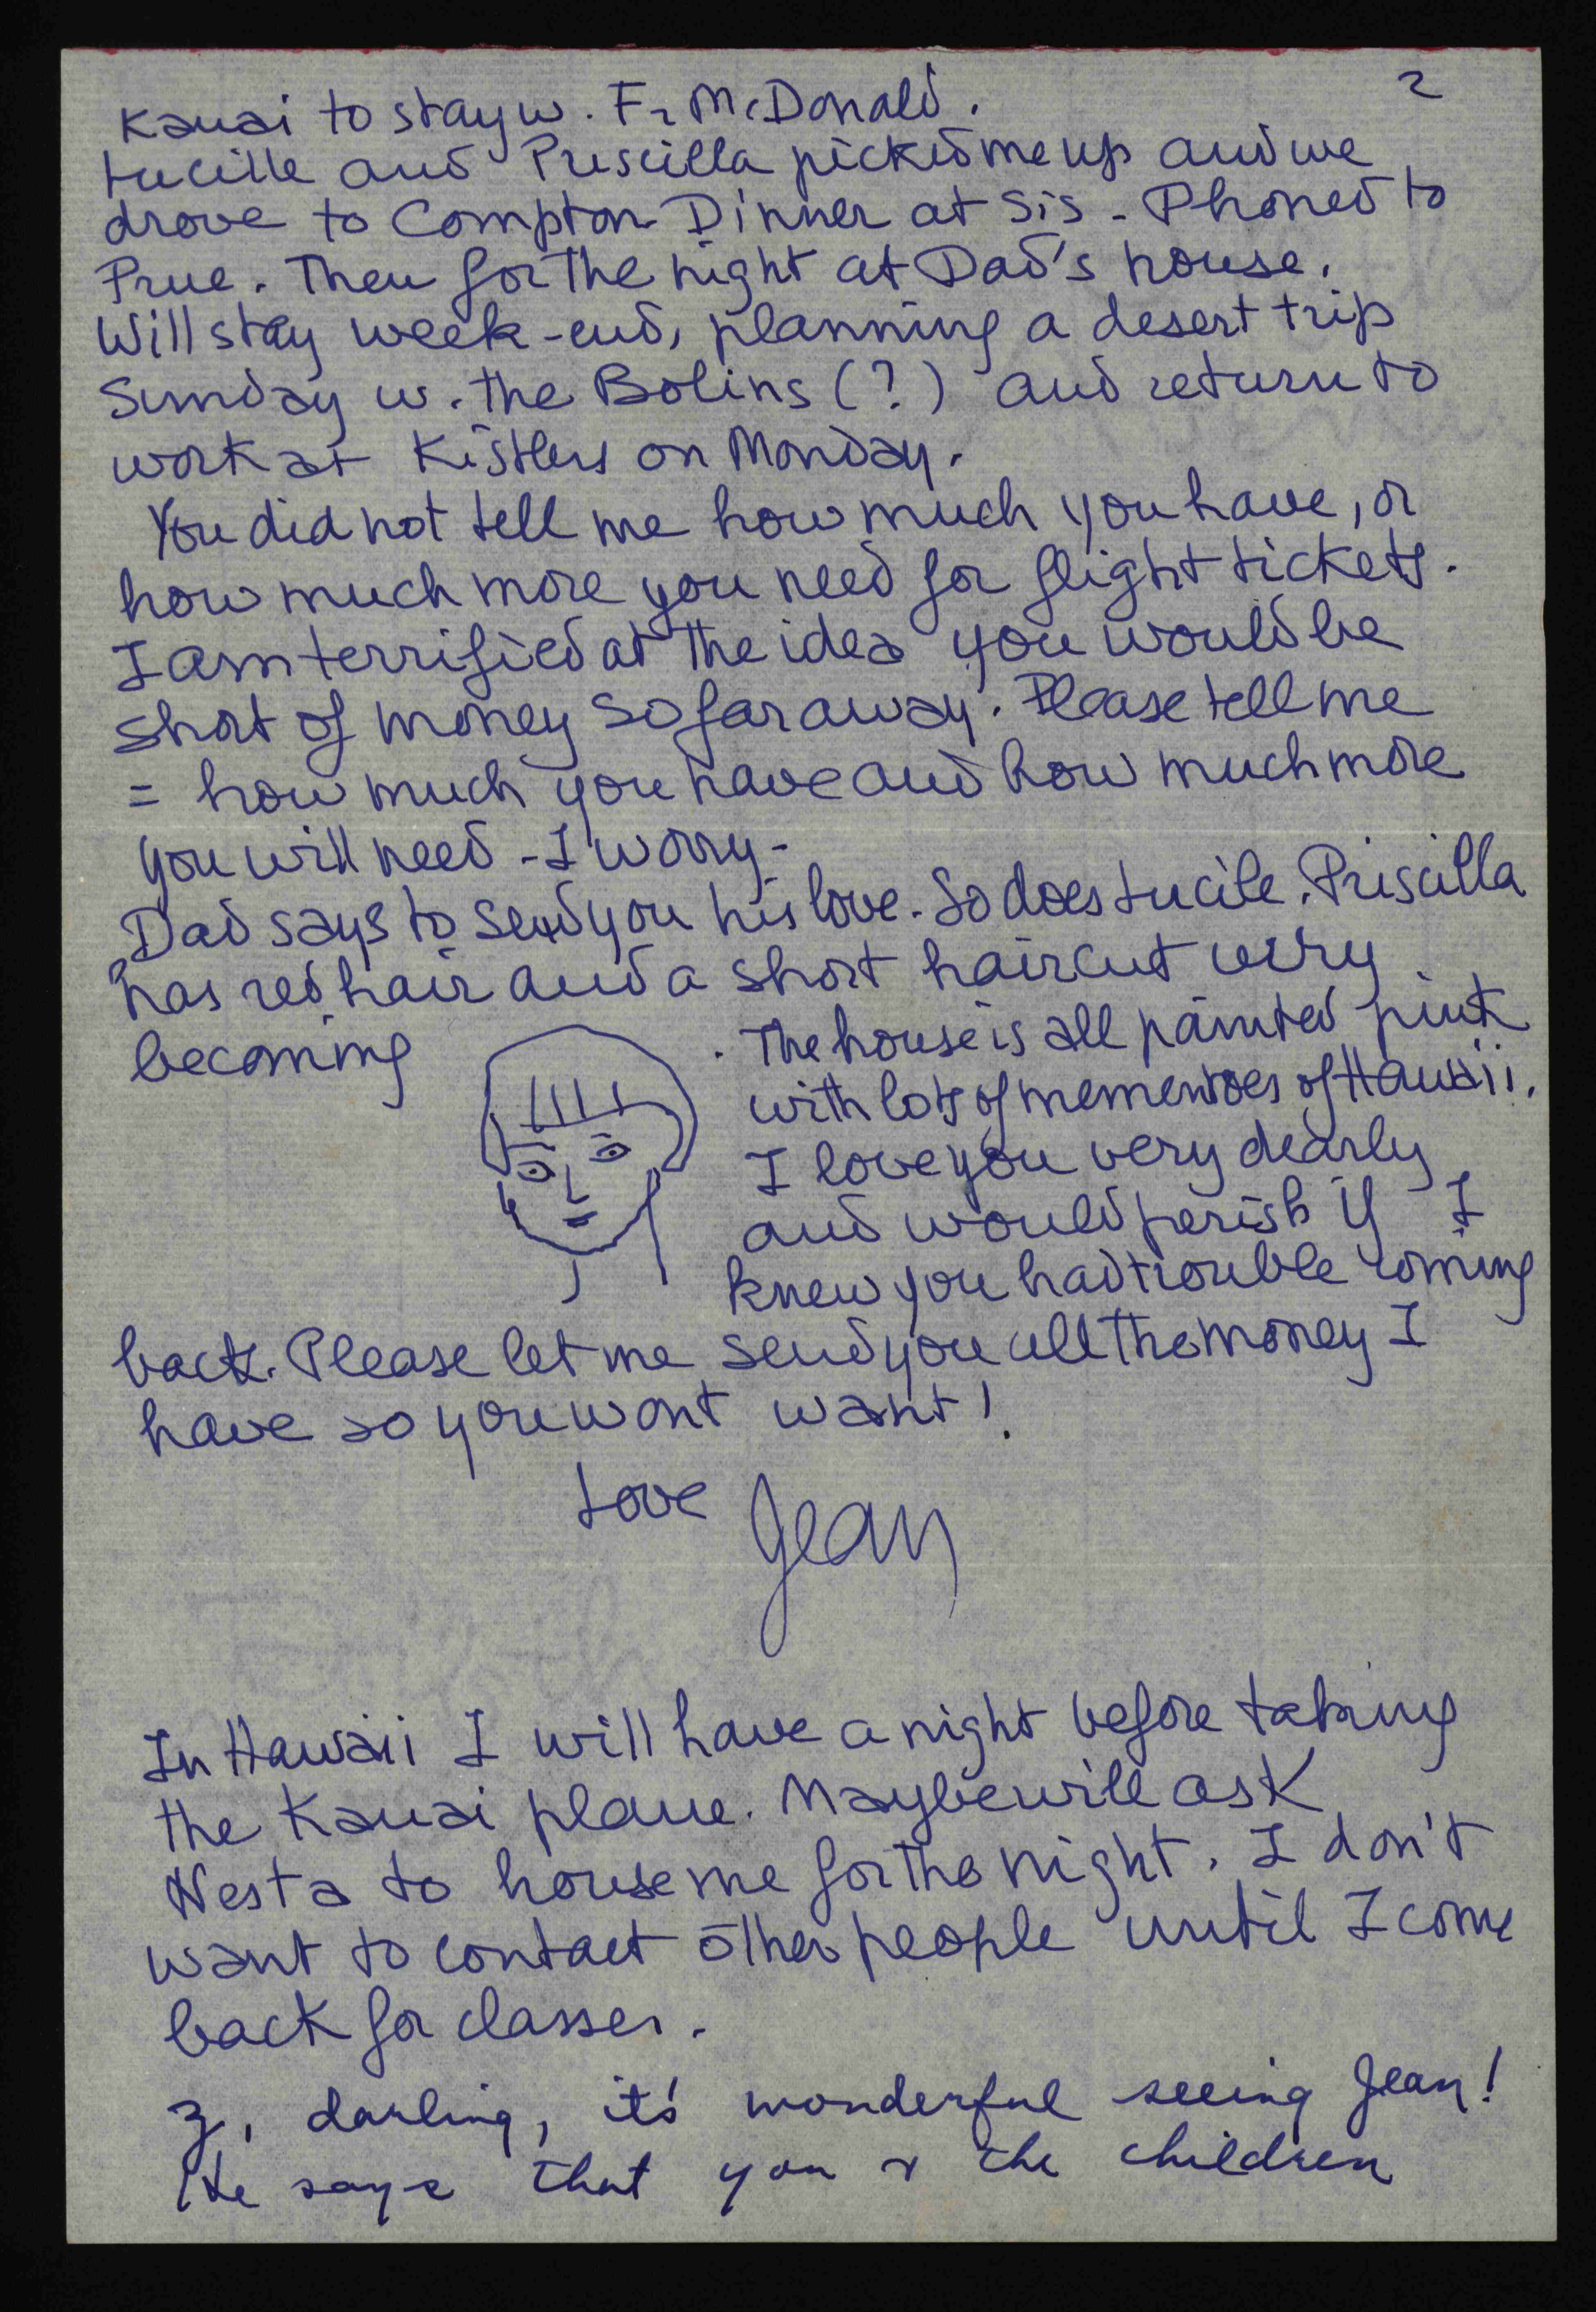 2
Kauai to stay w. Fr McDonald.
Lucille and Priscilla picked me up and we
drove to Compton Dinner at Sis - Phoned to
Prue. Then for the night at Dad's house.
Will stay week-end, planning a desert trip
Sunday w. the Bolins (?) and return to
work at Kistlers on Monday.
You did not tell me how much you have, or
how much more you need for flight tickets.
I am terrified at the idea you would be
short of money so far away. Please tell me
= how much you have and how much more
you will need - I worry -
Dad says to send you his love. So does Lucile. Priscilla
has red hair and a short haircut very
becoming . The house is all painted pink
with lots of mementoes of Hawaii.
I love you very dearly
and would perish if I
knew you had trouble coming
back. Please let me send you all the money I
have so you wont want!
Love Jean
In Hawaii I will have a night before taking
the Kauai plane. Maybe will ask
Nesta to house me for the night. I don't
want to contact other people until I come
back for classes.
Z, darling, it's wonderful seeing Jean!
He says that you & the children